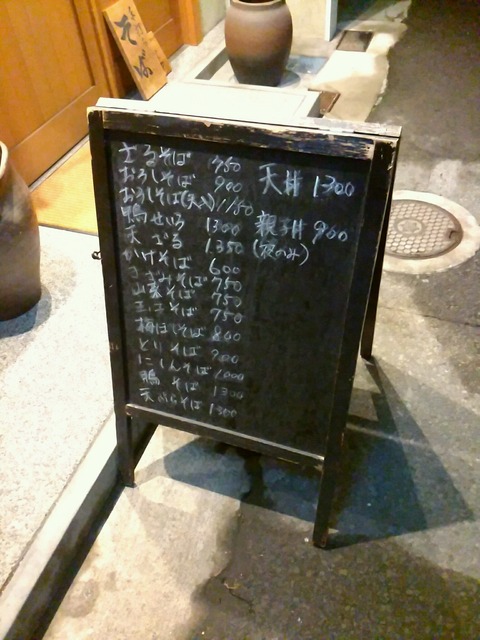 そば
ざるそば 750
おろしそば 900
おろしそば(天入) 1150
鴨せいろ 1300
天ざる 1350
かけそば 600
きざみそば 750
山菜そば 750
玉子そば 750
梅ぼしそば 800
とりそば 900
にしんそば 1000
鴨そば 1300
天ぷらそば 1300
天丼 1300
親子丼 900
(夜のみ)